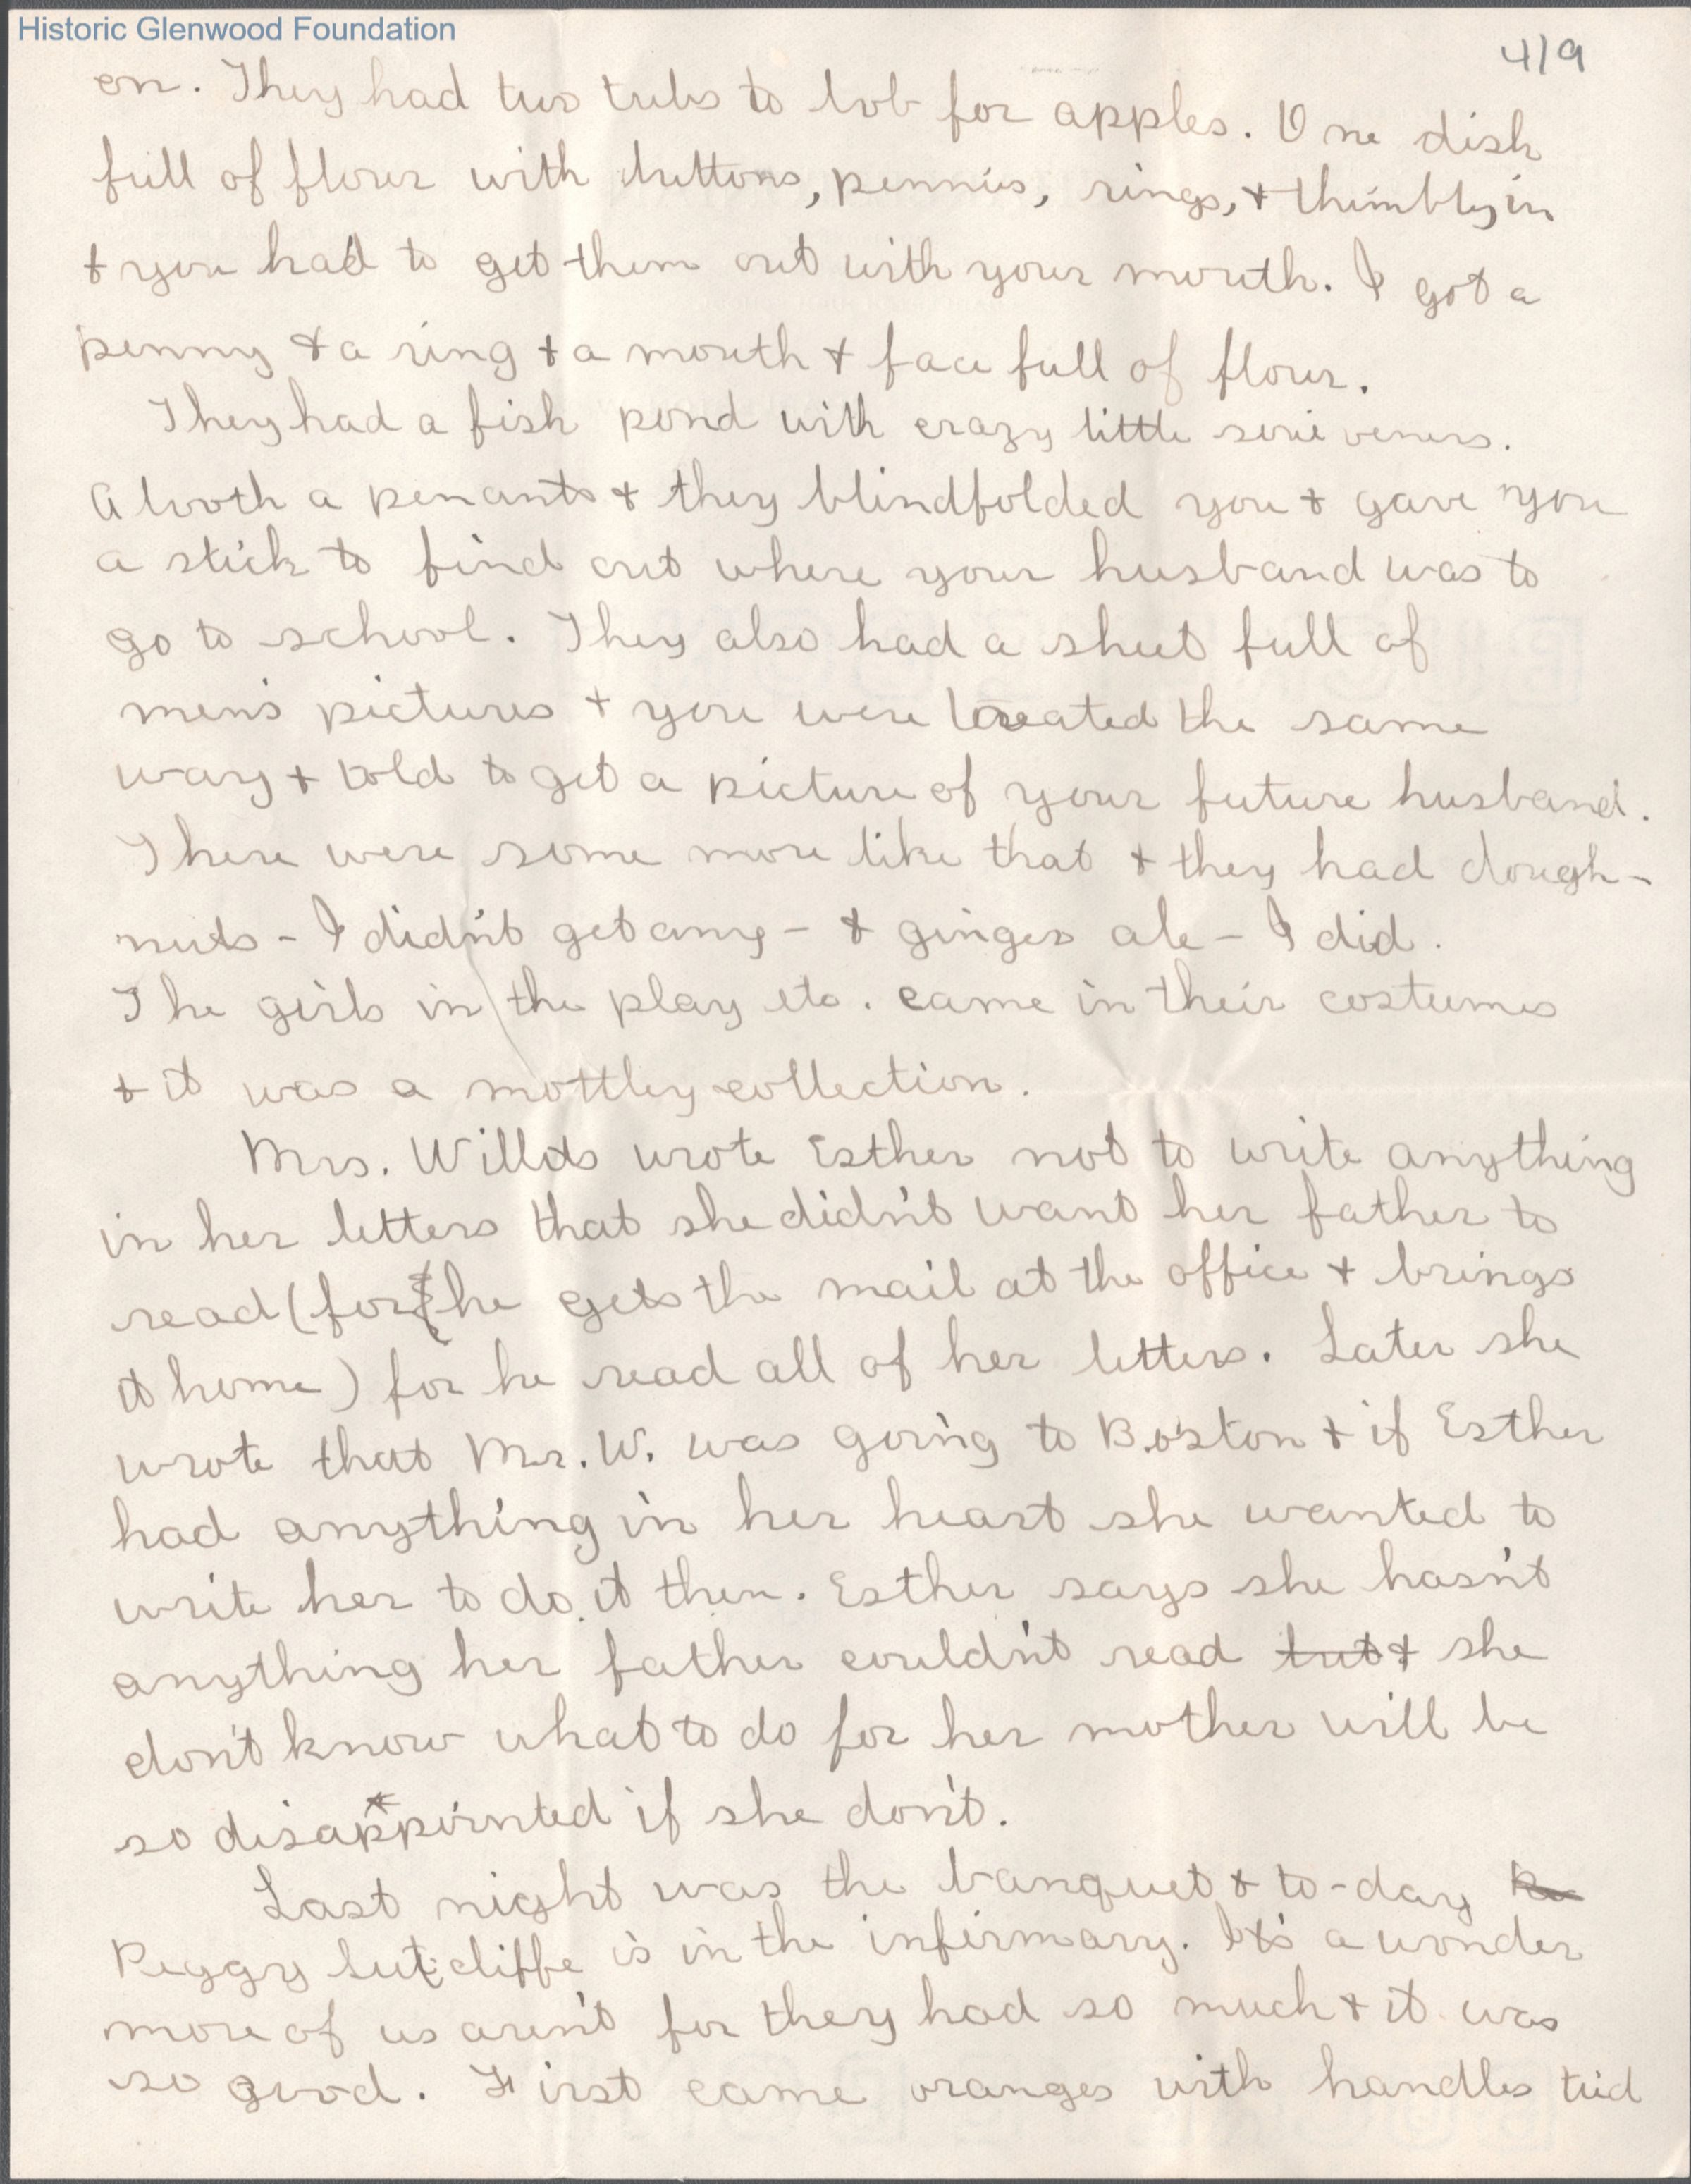 Historic Glenwood Foundation
419
on. They had two tubs to bob for apples. One dish
full of flour with buttons, pennies, rings, + thimbles in
+ you had to get them out with your mouth. I got a
penny + a ring + a mouth + face full of flour.
They had a fish pond with crazy little souieveners.
A booth a penants + they blindfolded you + gave you
a stick to find out where your husband was to
go to school. They also had a sheet full of
men's pictures + you were treated the same
way + told to get a picture of your future husband.
There were some more like that + they had dough-
nuts - I didn't get any - + ginger ale - I did.
The girls in the play etc. came in their costumes
+ it was a mottley collection.
Mrs. Willits wrote Esther not to write anything
in her letters that she didn't want her father to
read (for he gets the mail at the office + brings
it home) for he read all of her letters. Later she
wrote that Mr. W. was going to Boston + if Esther
had anything in her heart she wanted to
write her to do it then. Esther says she hasn't
anything her father couldn't read but + she
don't know what to do for her mother will be
so disappointed if she don't.
Last night was the banquet + to-day
Peggy Sutcliffe is in the infirmary. It's a wonder
more of us aren't for they had so much + it was
so good. First came oranges with handles tied